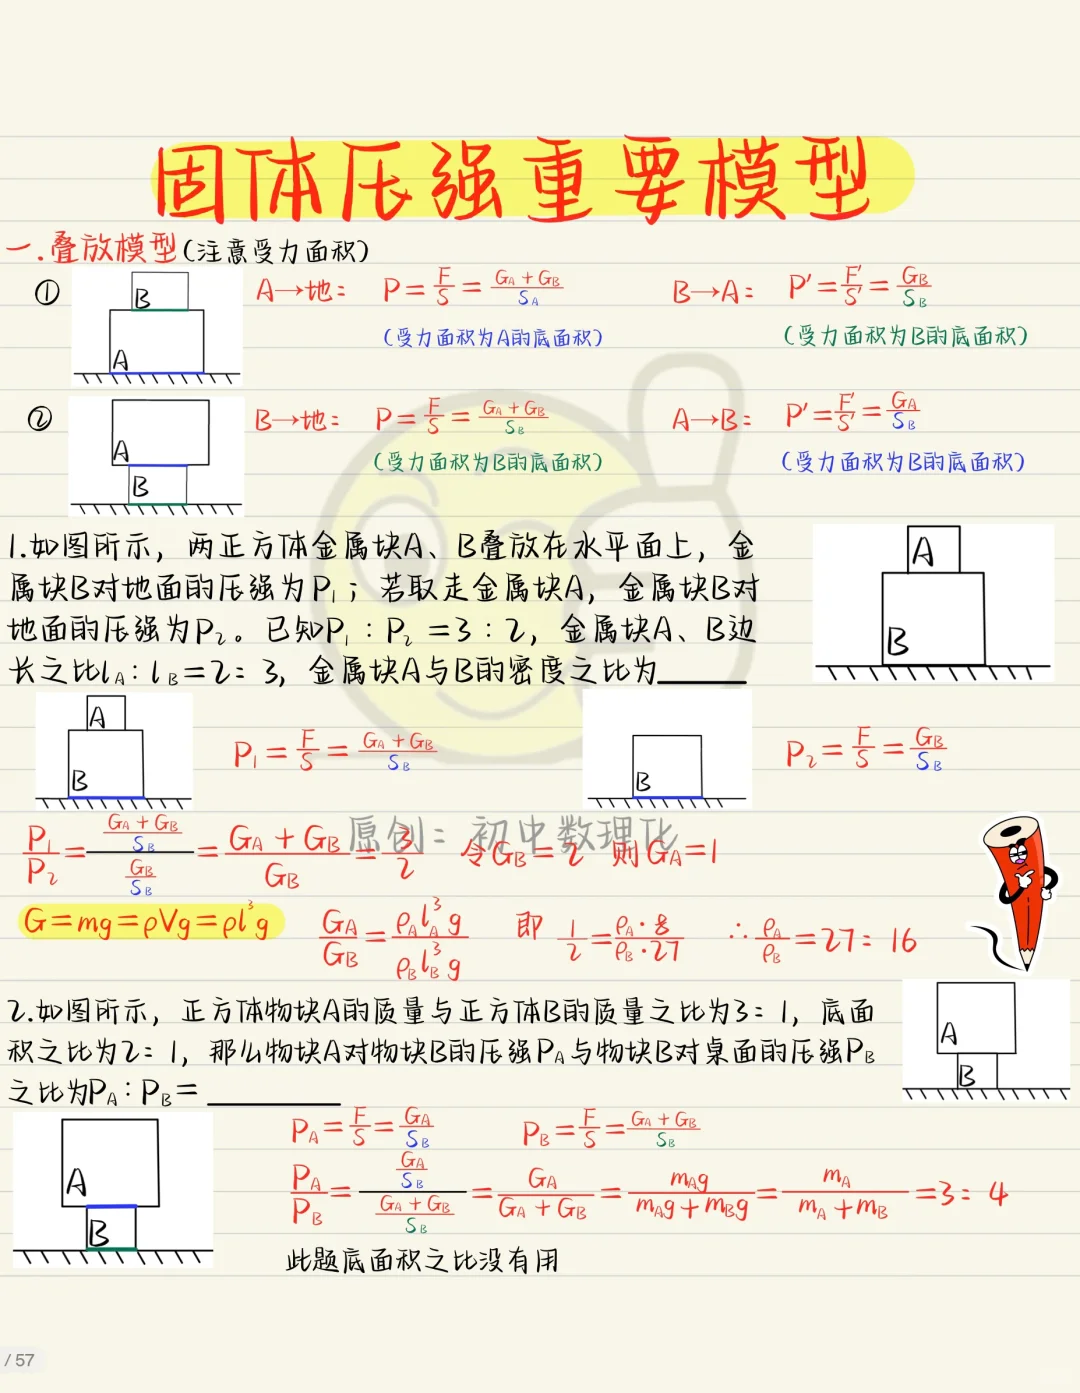 固体压强重要模型
一.叠放模型(注意受力面积)
① B A A→地: P=F/S=(GA+GB)/SA B→A: P'=F'/S'=GB/SB
(受力面积为A的底面积) (受力面积为B的底面积)
② A B B→地: P=F/S=(GA+GB)/SB A→B: P'=F'/S'=GA/SB
(受力面积为B的底面积) (受力面积为B的底面积)
1.如图所示，两正方体金属块A、B叠放在水平面上，金
属块B对地面的压强为P₁；若取走金属块A，金属块B对
地面的压强为P₂。已知P₁:P₂=3:2，金属块A、B边
长之比lA:lB=2:3，金属块A与B的密度之比为______
A
B
A B P₁=F/S=(GA+GB)/SB B P₂=F/S=GB/SB
P₁/P₂=((GA+GB)/SB)/(GB/SB)=(GA+GB)/GB=3/2 令GB=2 则GA=1
原创：初中数理化
G=mg=ρVg=ρl³g GA/GB=ρAlA³g/ρBlB³g 即 1/2=ρA·8/ρB·27 ∴ρA/ρB=27:16
2.如图所示，正方体物块A的质量与正方体B的质量之比为3:1，底面
积之比为2:1，那么物块A对物块B的压强PA与物块B对桌面的压强PB
之比为PA:PB=______
A
B
A B PA=F/S=GA/SB PB=F/S=(GA+GB)/SB
PA/PB=(GA/SB)/((GA+GB)/SB)=GA/(GA+GB)=mAg/(mAg+mBg)=mA/(mA+mB)=3:4
此题底面积之比没有用
/ 57